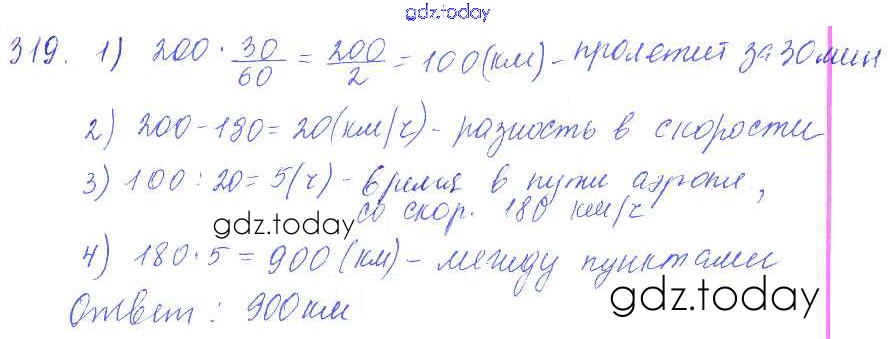 gdz.today
319. 1) 200 · 30/60 = 200/2 = 100 (км) - пролетит за 30 мин
2) 200 - 180 = 20 (км/ч) - разность в скорости
3) 100 : 20 = 5 (ч) - время в пути аэропл,
со скор. 180 км/ч
gdz.today
4) 180 · 5 = 900 (км) - между пунктами
Ответ: 900 км
gdz.today